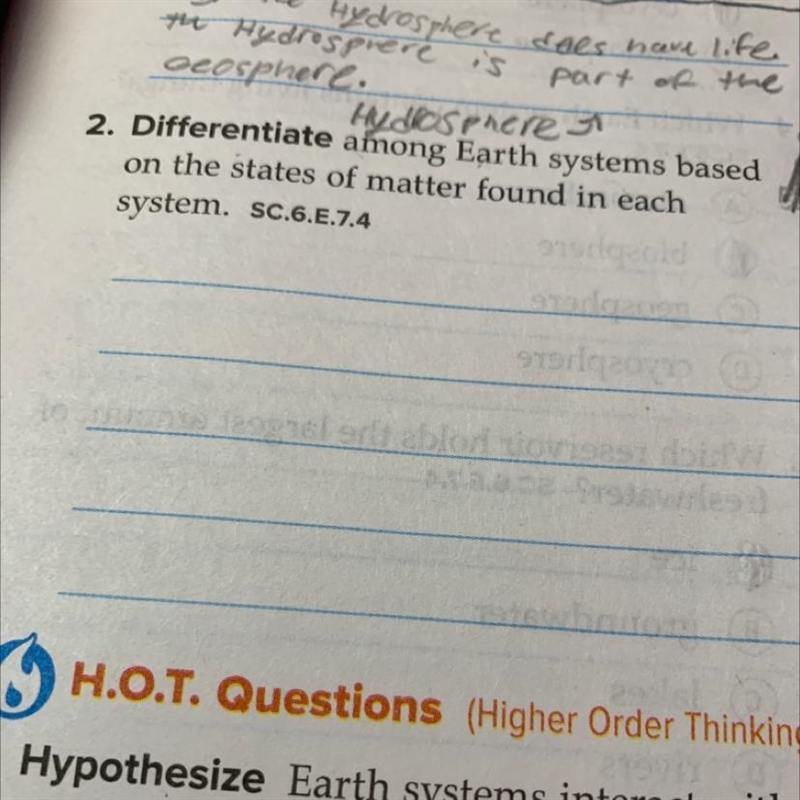 Hydrosphere does have life.
the Hydrosphere is part of the
Geosphere.
Hydrosphere
2. Differentiate among Earth systems based
on the states of matter found in each
system. SC.6.E.7.4
H.O.T. Questions (Higher Order Thinking
Hypothesize Earth systems interact